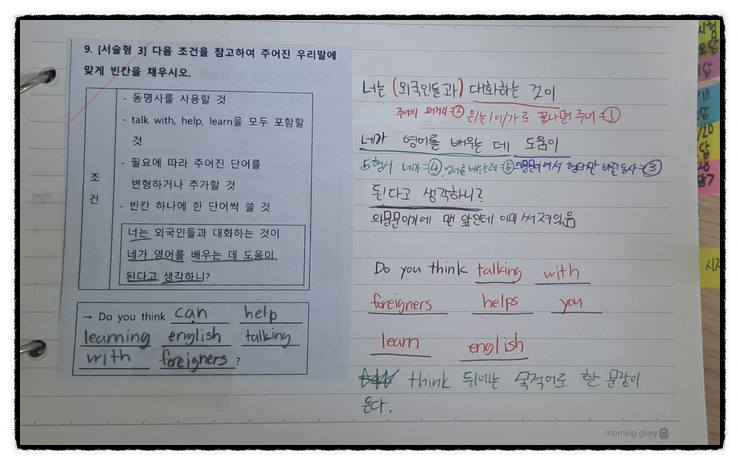 9. [서술형 3] 다음 조건을 참고하여 주어진 우리말에
맞게 빈칸을 채우시오.
조
건
- 동명사를 사용할 것
- talk with, help, learn을 모두 포함할
것
- 필요에 따라 주어진 단어를
변형하거나 추가할 것
- 빈칸 하나에 한 단어씩 쓸 것
너는 외국인들과 대화하는 것이
네가 영어를 배우는 데 도움이
된다고 생각하니?
→ Do you think can help
learning english talking
with foreigners ?
너는 (외국인들과) 대화하는 것이
은/는/이/가로 끝나면 주어=①
네가 영어를 배우는 데 도움이
5형식 네가=④ 영어를 배우는데=⑤ 동사=③
된다고 생각하니?
의문문이기에 맨 앞인데 이미 써져있음
Do you think talking with
foreigners helps you
learn english
think 뒤에는 목적어로 한 문장이
온다.
morning glory